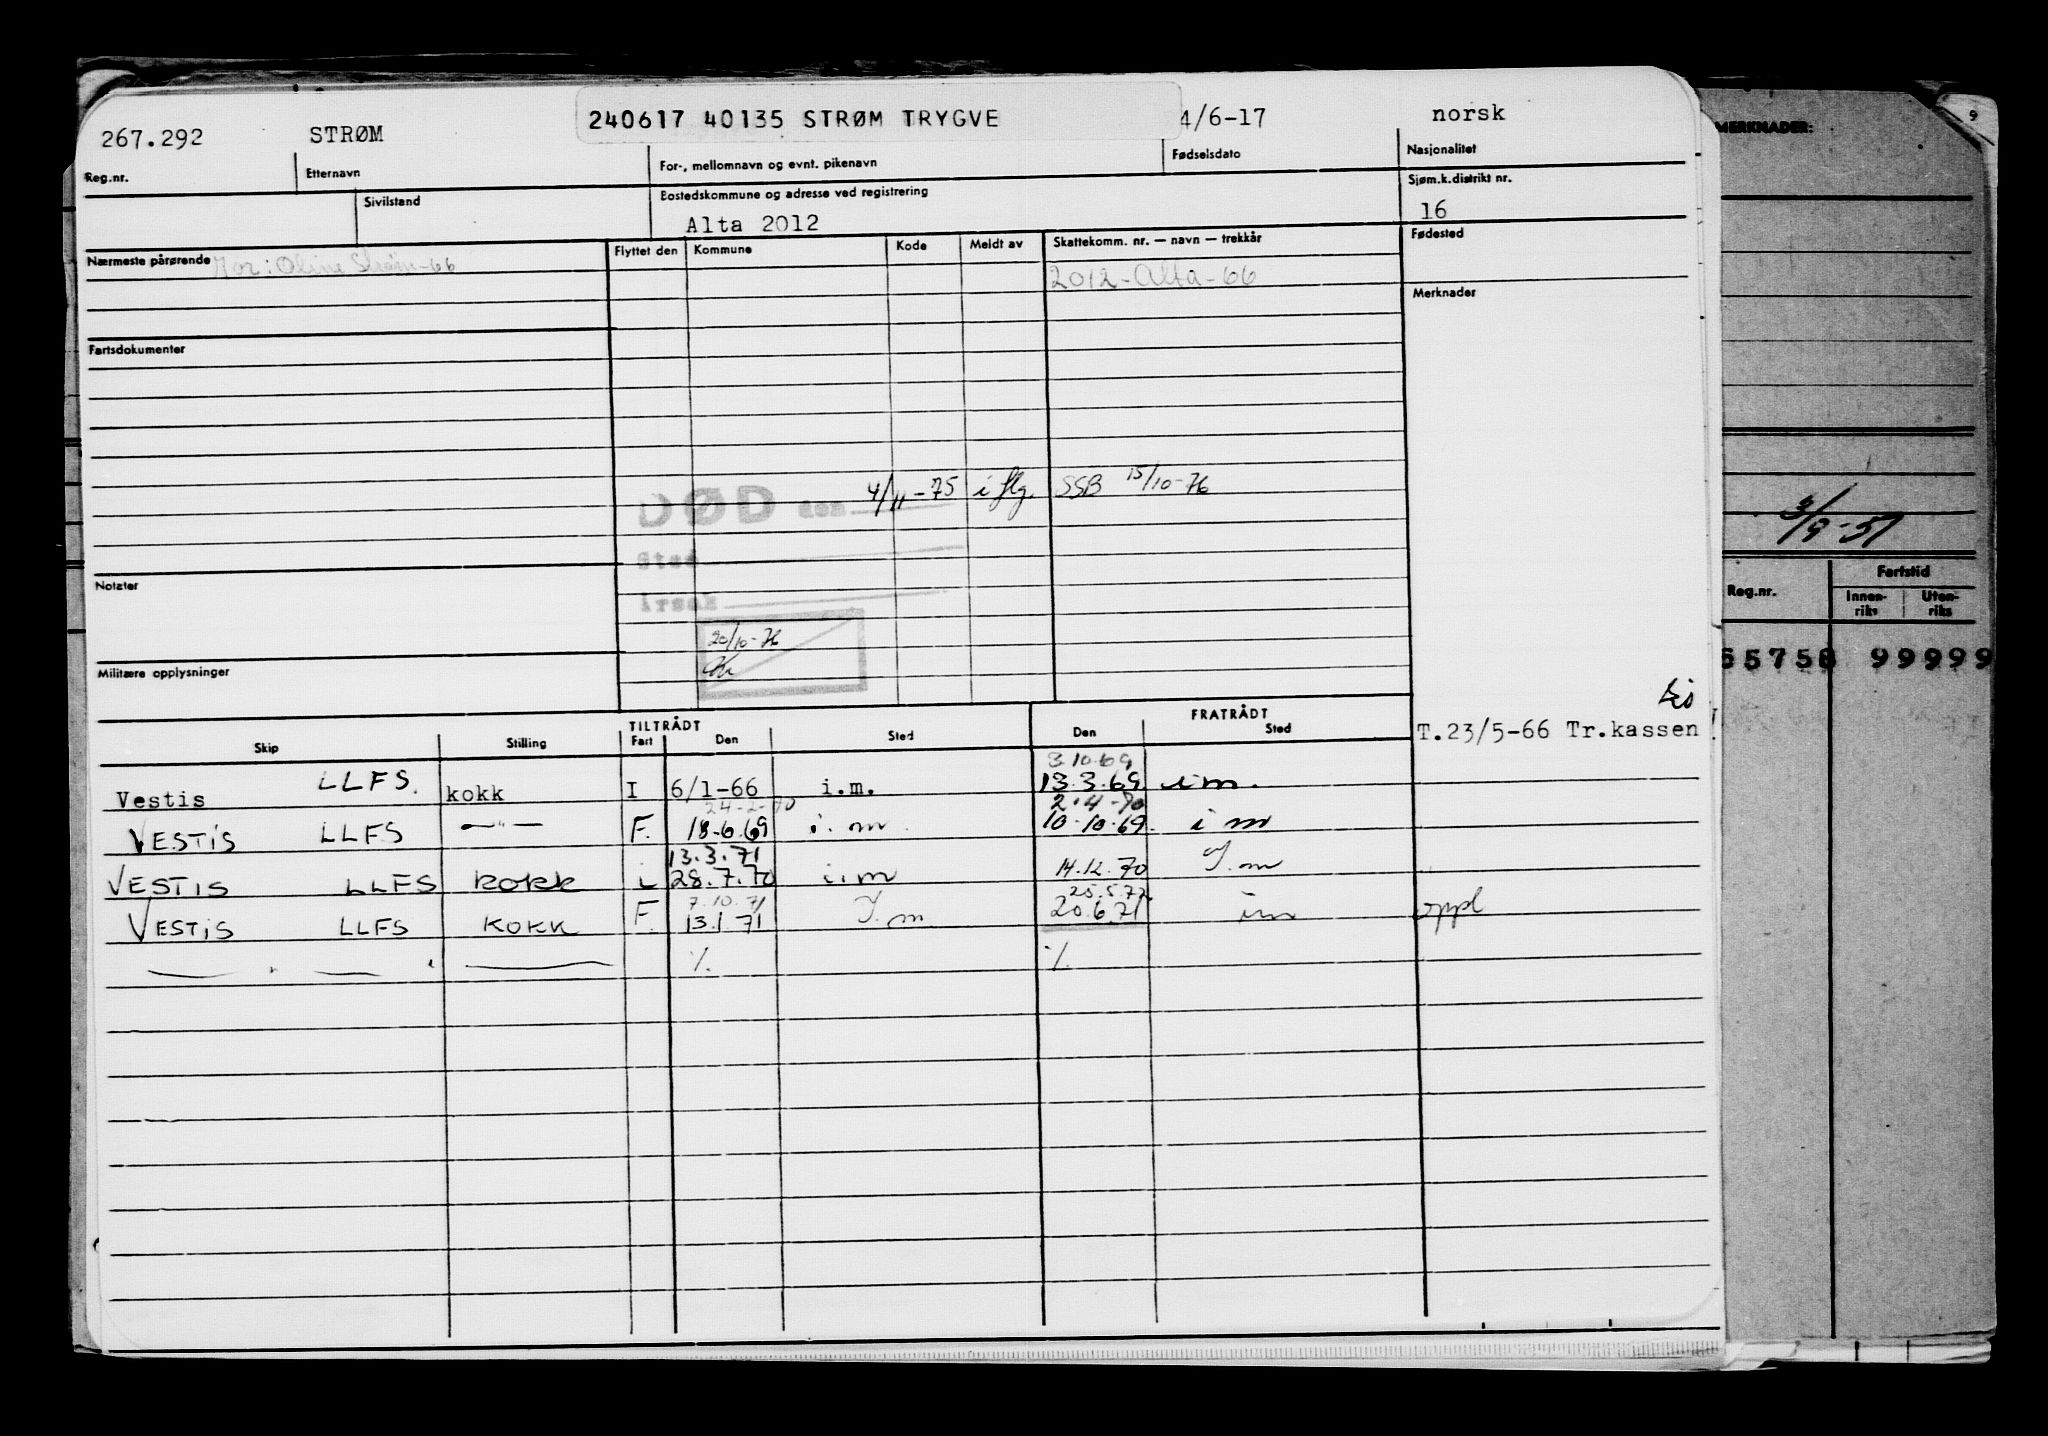 267.292 STRØM 240617 40135 STRØM TRYGVE 4/6-17 norsk
Reg.nr. Etternavn For-, mellomnavn og evnt. pikenavn Fødselsdato Nasjonalitet
Sivilstand Bostedskommune og adresse ved registrering Sjøm.k.distrikt nr.
Alta 2012 16
Nærmeste pårørende Mor: Oline Strøm-66 Flyttet den Kommune Kode Meldt av Skattekomm. nr. — navn — trekkår Fødested
2012-Alta-66
Merknader
Fartsdokumenter
DØD den 4/11-75 i flg. SSB 15/10-76
Sted
Årsak
Notater
20/10-76
Militære opplysninger
TILTRÅDT FRATRÅDT
Skip Stilling Fart Den Sted Den Sted T.23/5-66 Tr.kassen
3.10.69
Vestis LLFS. kokk I 6/1-66 i.m. 13.3.69 i m.
24-2-70 2.4-70
VESTIS LLFS —"— F. 18-6.69 i. m. 10.10.69. i m
13.3.71
VESTIS LLFS KOKK i 28.7.70 i.m 14.12.70 I.m
7.10.71 25.5.72
VESTIS LLFS KOKK F. 13.1.71 I.m 20.6.71 im oppl
" ٪ ٪
MERKNADER:
9
3/9-51
Reg.nr. Fartstid
Innen-riks Uten-riks
55758 99999